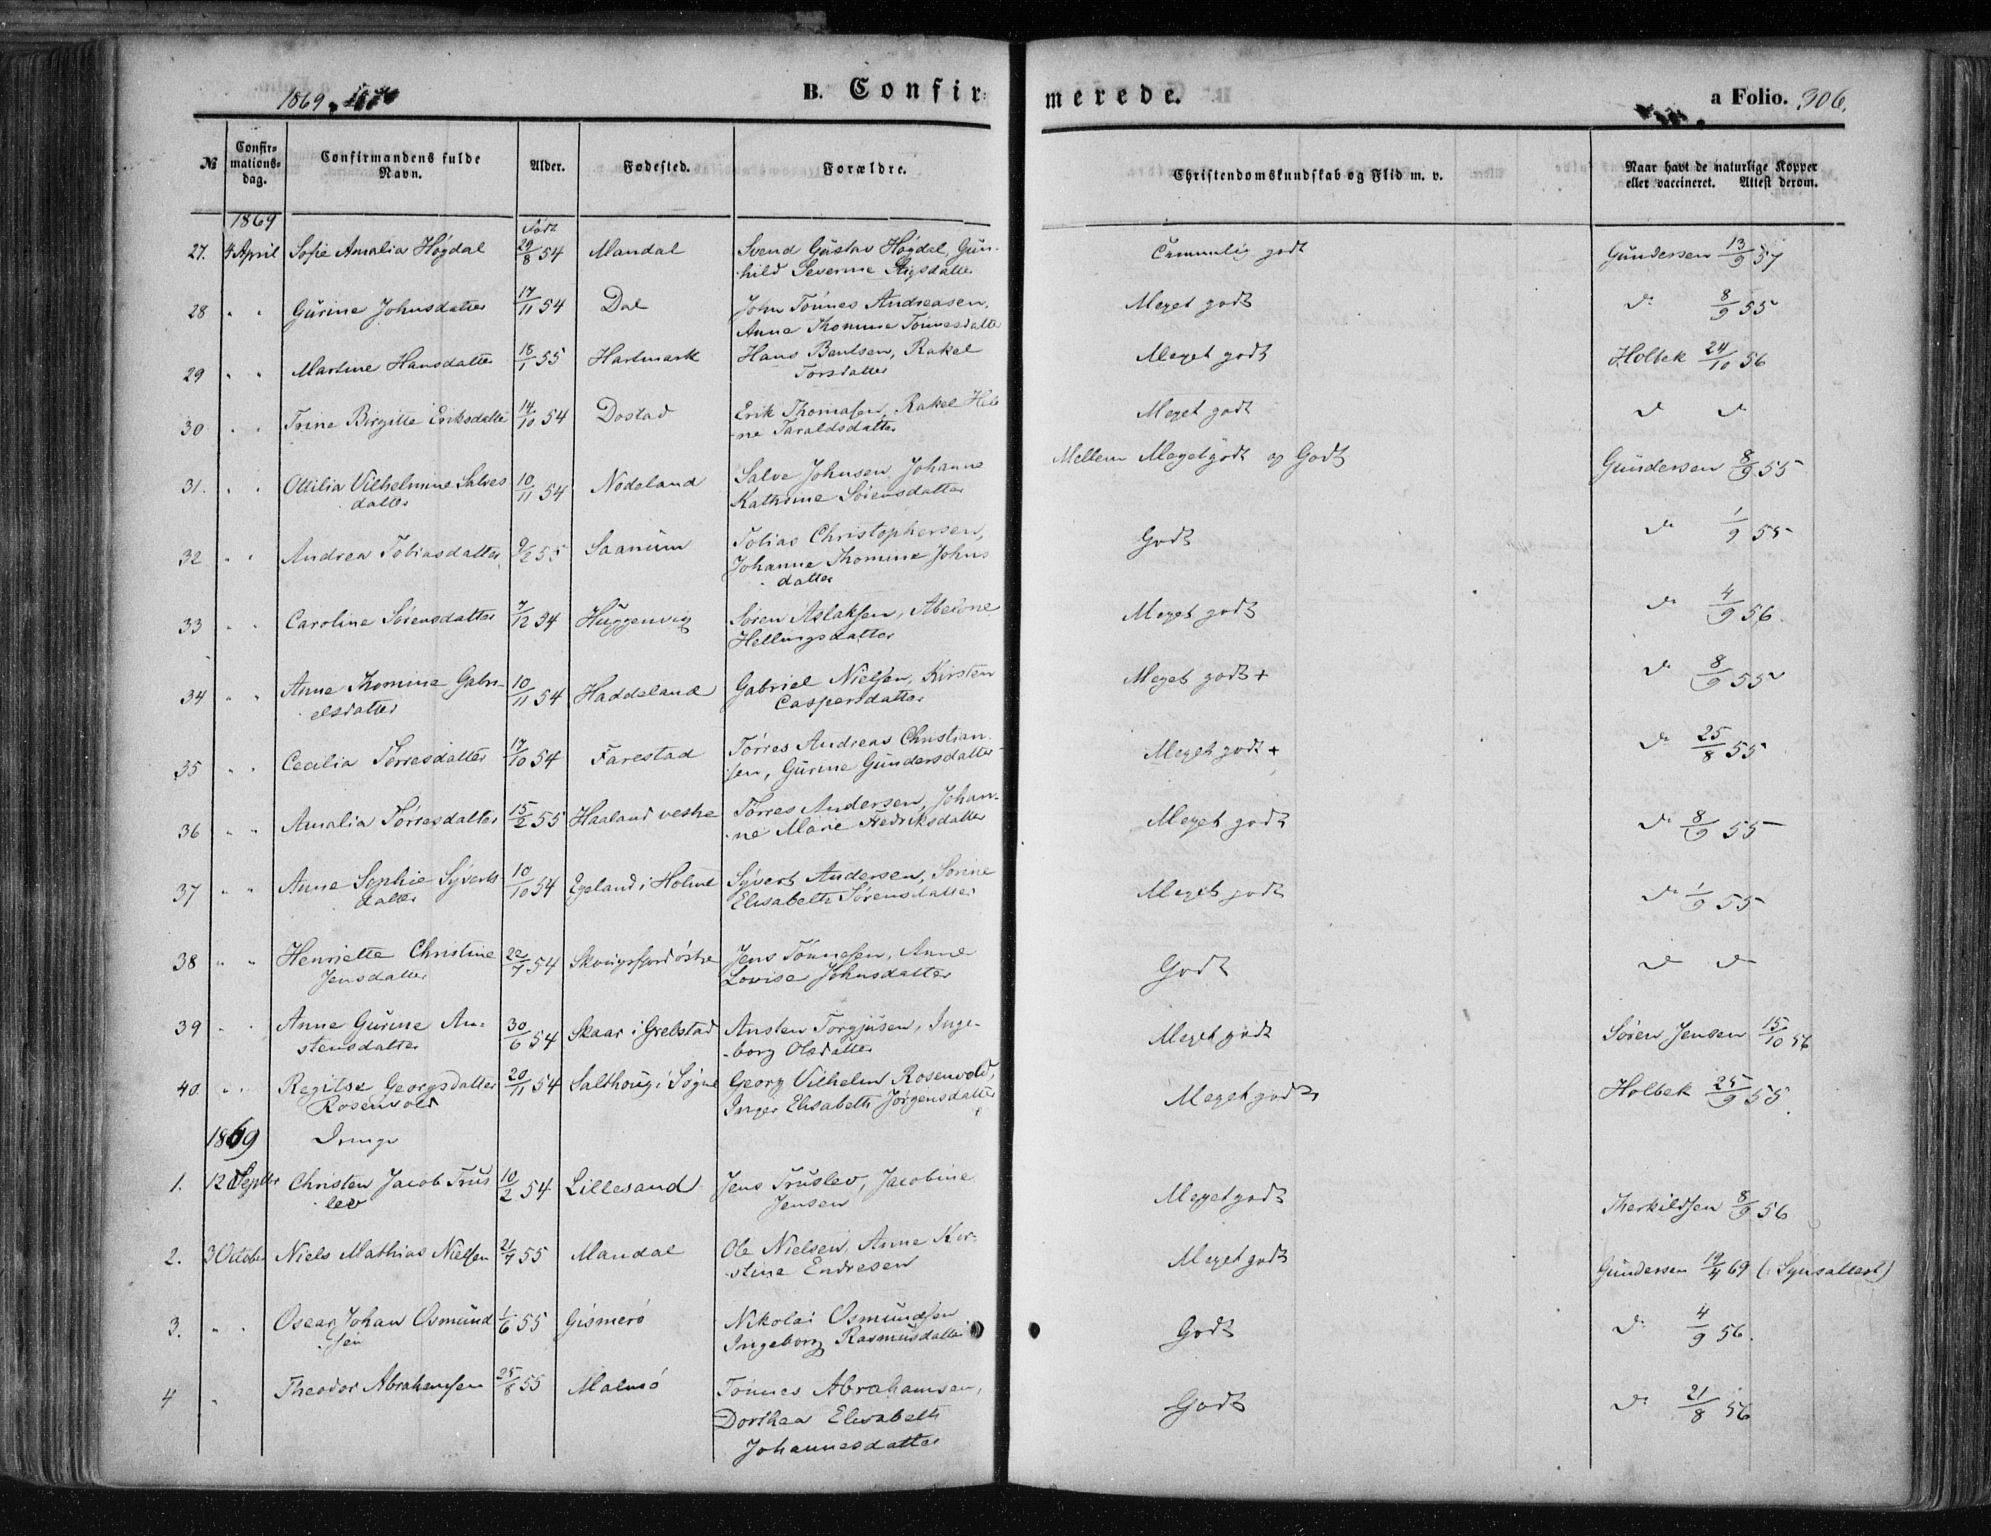 1869.
B. Confir-
merede.
a Folio. 306.
№
Confir-
mations-
dag.
Confirmandens fulde
Navn.
Alder.
Fødested.
Forældre.
Christendomskundskab og Flid m. v.
Naar havt de naturlige Kopper
eller vaccineret. Attest derom.
1869 Født
27. 4 April Sofie Amalia Høgdal 29/8 54 Mandal Svend Gustav Høgdal, Gun- Gundersen 13/9 57
hild Severine godt
28 " " Gurine Johnsdatter 17/11 54 Dal John Tönnes Andreasen, Meget godt do 8/9 55
Anne Thomine Tönnesdatter
29 " " Martine Hansdatter 18/1 55 Hartmark Hans Bentsen, Rakel Meget godt Holbek 24/10 56
Torsdatter
30 " " Trine Birgitte Eriksdatter 14/10 54 Dostad Erik Thomasen, Rakel Hele Meget godt do do
-ne Taraldsdatter
31. " " Ottilia Vilhelmine Salves 10/11 54 Nodeland Salve Johnsen Johanne Mellem Meget godt og Godt Gundersen 8/9 55
datter Kathrine Sörensdatter
32 " " Andrea Tobiasdatter 9/2 55 Saanum Tobias Christophersen, Godt do 1/9 55
Johanne Thomine Johns
datter
33 " " Caroline Sörensdatter 7/12 54 Huggenvig Sören Aslaksen, Meget godt do 4/9 56.
Hellingsdatter
34 " " Anne Thomine Gabri- 10/11 54 Haddeland Gabriel Nielsen, Kirsten Meget godt + do 8/9 55
elsdatter Caspersdatter
35 " " Cecilia Törresdatter 17/10 54 Farestad Törres Andreas Christian- Meget godt + do 25/8 55
sen, Gurine Gundersdatter
36 " " Amalia Törresdatter 15/2 55 Haaland vestre Törres Andersen, Johan- Meget godt do 8/9 55
-ne Marie Fredriksdatter
37 " " Anne Sophie Syverts 10/10 54 Egeland i Holme Syvert Andersen, Sörine Meget godt do 1/9 55
datter Elisabeth Sörensdatter
38 " " Henriette Christine 22/7 54 östre Jens Tönnesen, Anne Godt do do
Jensdatter Lovise Johnsdatter
39 " " Anne Gurine An- 30/6 54 Skaar i Grelstad Ansten Torgjusen, Inge- Meget godt Sören Jensen 15/10 56
stensdatter -borg Olsdatter
40 " " Regitse Georgsdatter 20/11 54 Salthoug i Søgne Georg Vilhelm Rosenvold, Meget godt Holbek 25/9 55.
Rosenvold Inger Elisabeth Jørgensdatter
1869 Drenge
1. 12 Septbr Christen Jacob Trus 10/2 54 Lillesand Jens Truslev, Jacobine Meget godt Therkildsen 8/9 56
lev Jensen
2. 3 Octobr Niels Mathias Nielsen 21/7 55 Mandal Ole Nielsen, Anne Kir- Meget godt Gundersen 19/4 69 (: Synsattest)
-stine Endresen
3. " " Oscar Johan Osmund 1/6 55 Gismerö Nikolai Osmundsen Godt do 4/9 56.
sen Ingeborg Rasmusdatter
4 " Theodor Abrahamsen 25/8 55 Malmö Tönnes Abrahamsen, Godt do 21/8 56
Dorthea Elisabeth
Johannesdatter